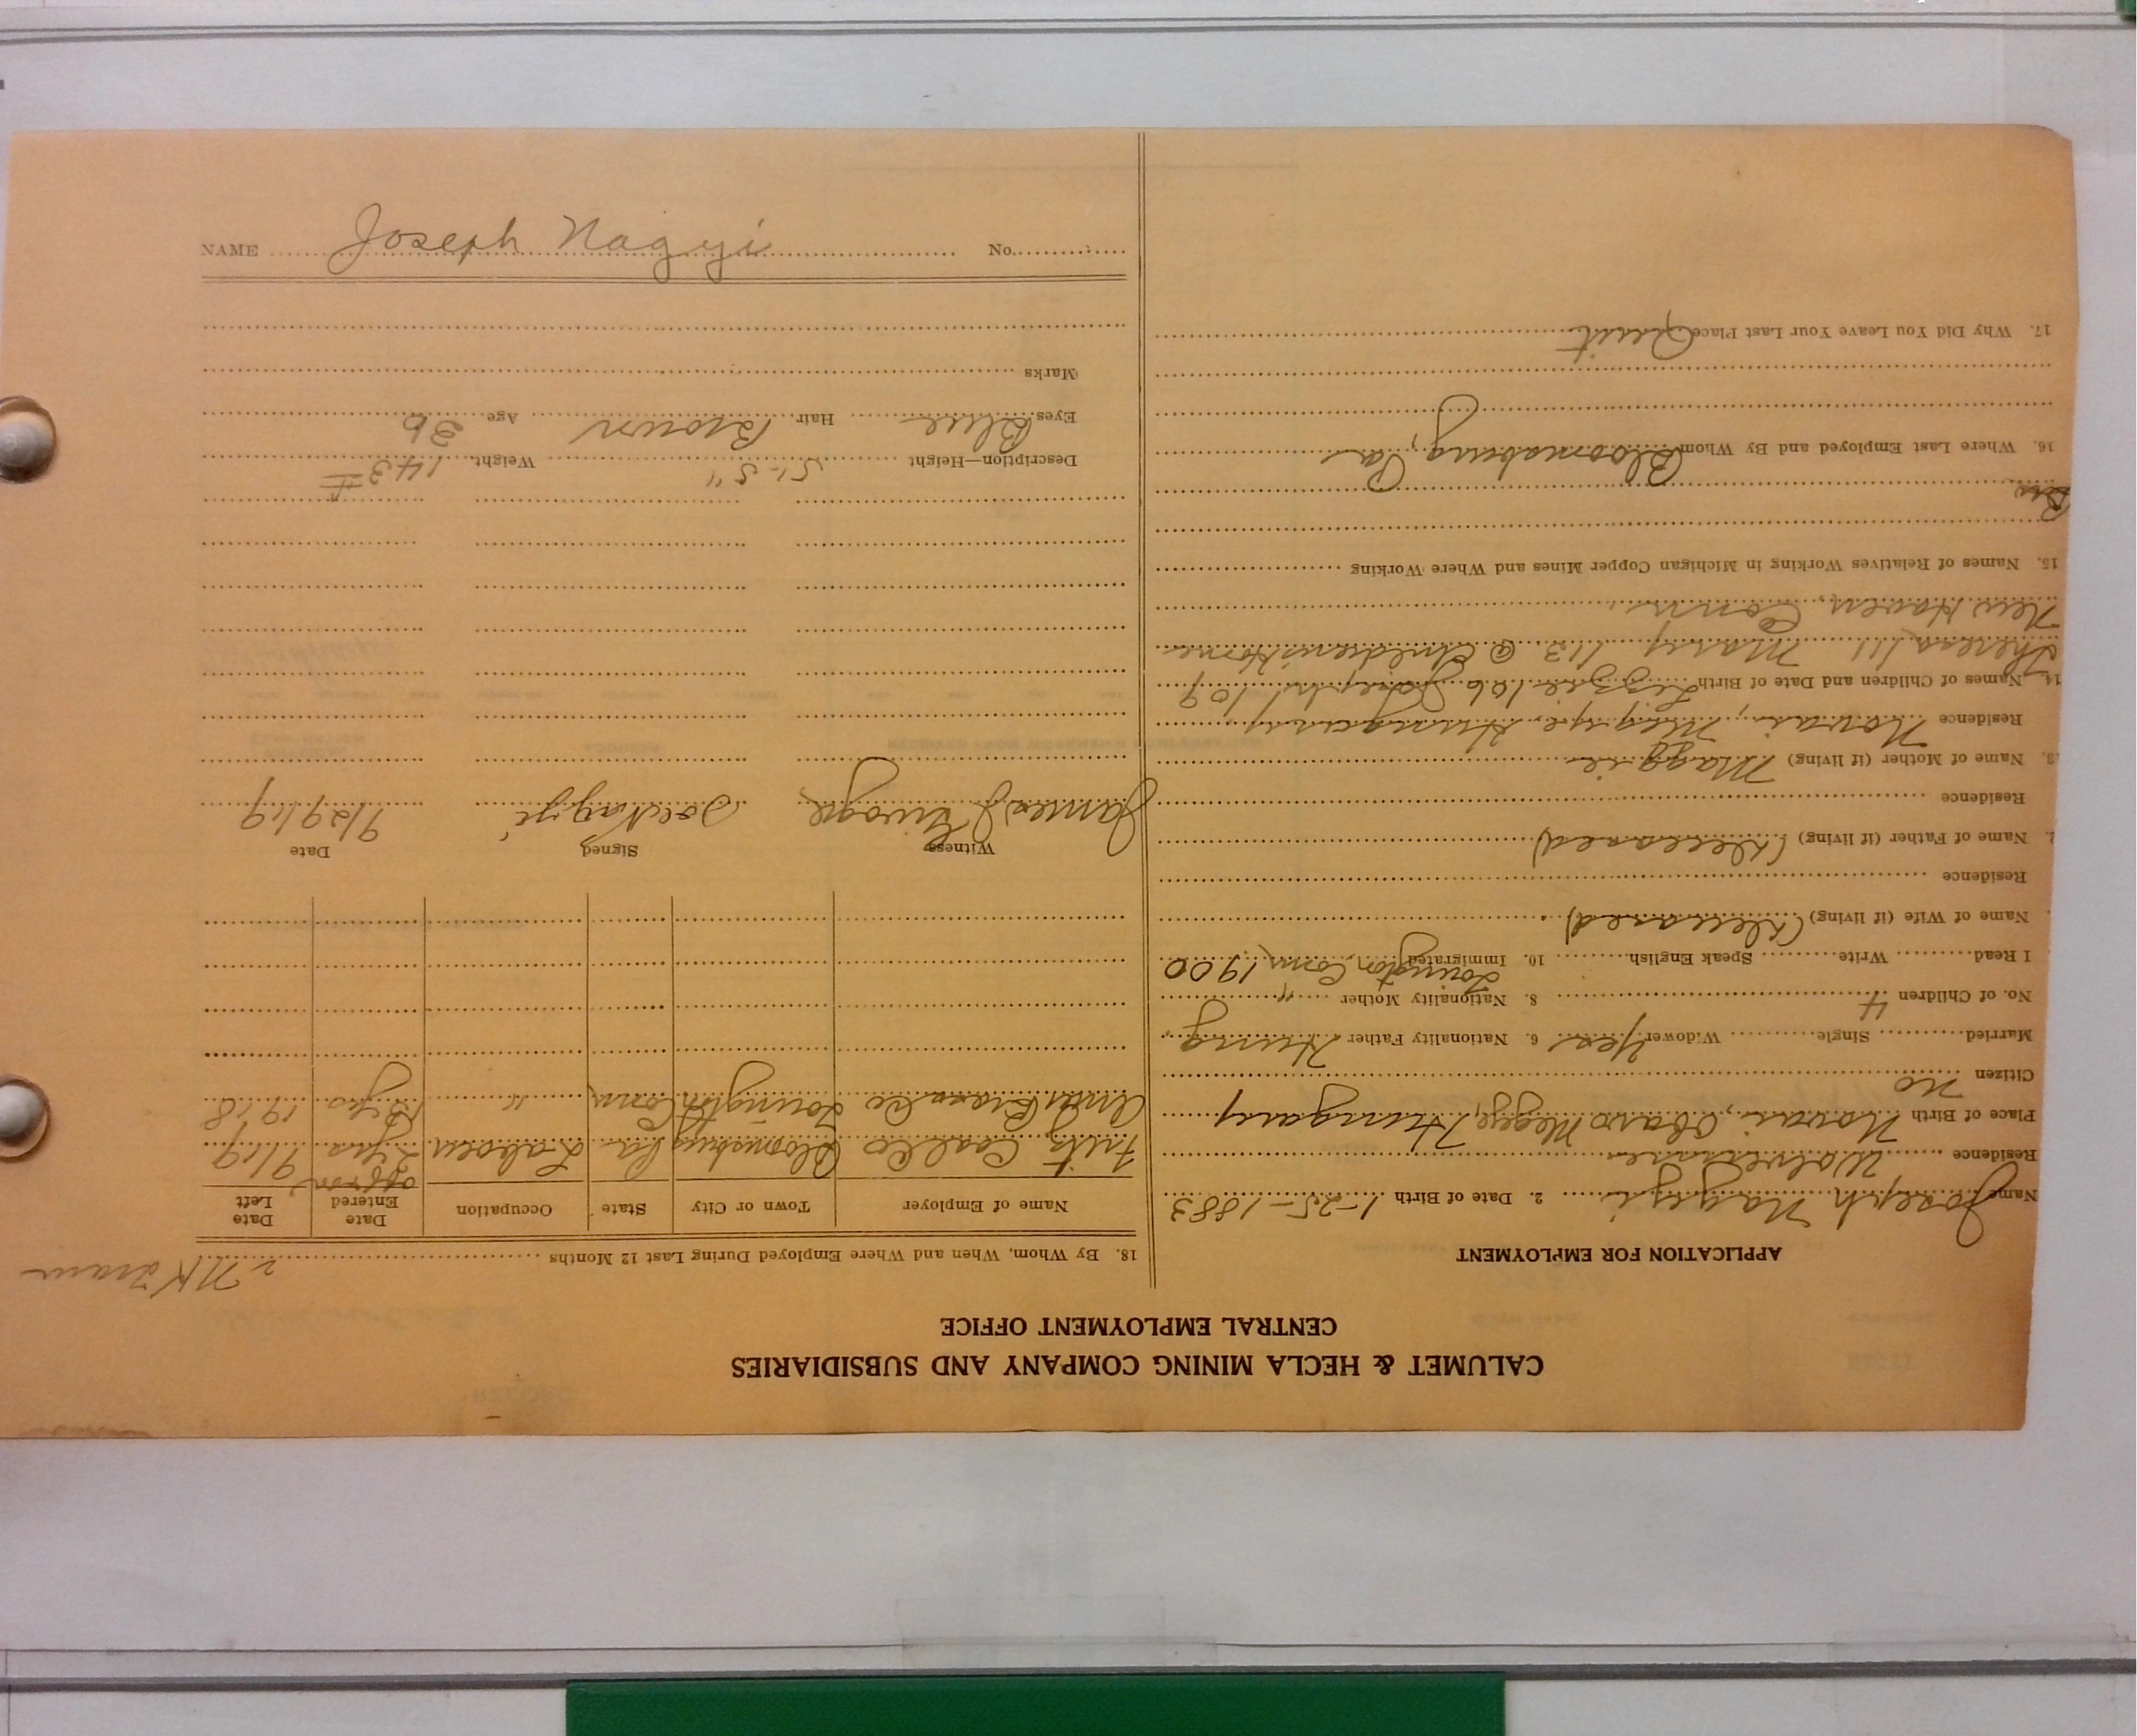 CALUMET & HECLA MINING COMPANY AND SUBSIDIARIES
CENTRAL EMPLOYMENT OFFICE
APPLICATION FOR EMPLOYMENT
Name Joseph Nagyi 2. Date of Birth 1-25-1883
Residence Wolverine
Place of Birth Novai, Obaro Megye, Hungary
Citizen no
Married Single Widower Yes 6. Nationality Father Hung
No. of Children 4 8. Nationality Mother "
I Read Write Speak English 10. Immigrated Conn, 1900
Name of Wife (if living) (Deceased)
Residence
Name of Father (if living) (Deceased)
Residence
Name of Mother (if living) Maggie
Residence Novai, Megye, Hungary
14. Names of Children and Date of Birth Lizzie 106 Joseph 109
Theresa 111 Mary 113 @ Childrens Home
New Haven, Conn.
15. Names of Relatives Working in Michigan Copper Mines and Where Working
16. Where Last Employed and By Whom Bloomsburg, Pa
17. Why Did You Leave Your Last Place Quit
18. By Whom, When and Where Employed During Last 12 Months
Name of Employer Town or City State Occupation Date Entered Date Left
Coal Co Bloomsburg Pa Laborer 9/19
Brass Co Conn " 1918
Witness Signed Date
James J Joe Nagyi 9/29/19
Description—Height 5'-5" Weight 143#
Eyes Blue Hair Brown Age 36
Marks
NAME Joseph Nagyi No.